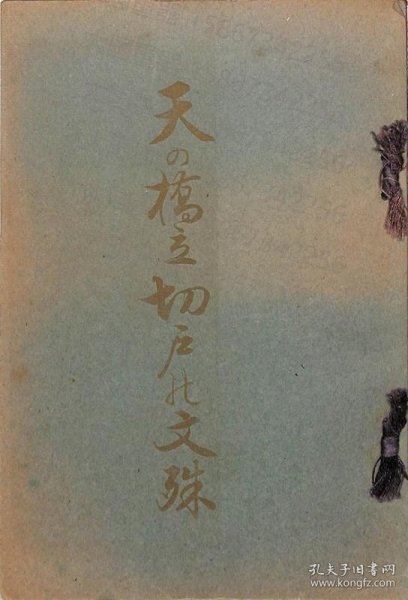 天の橋立切戸の文殊
孔夫子旧书网
www.kongfz.com